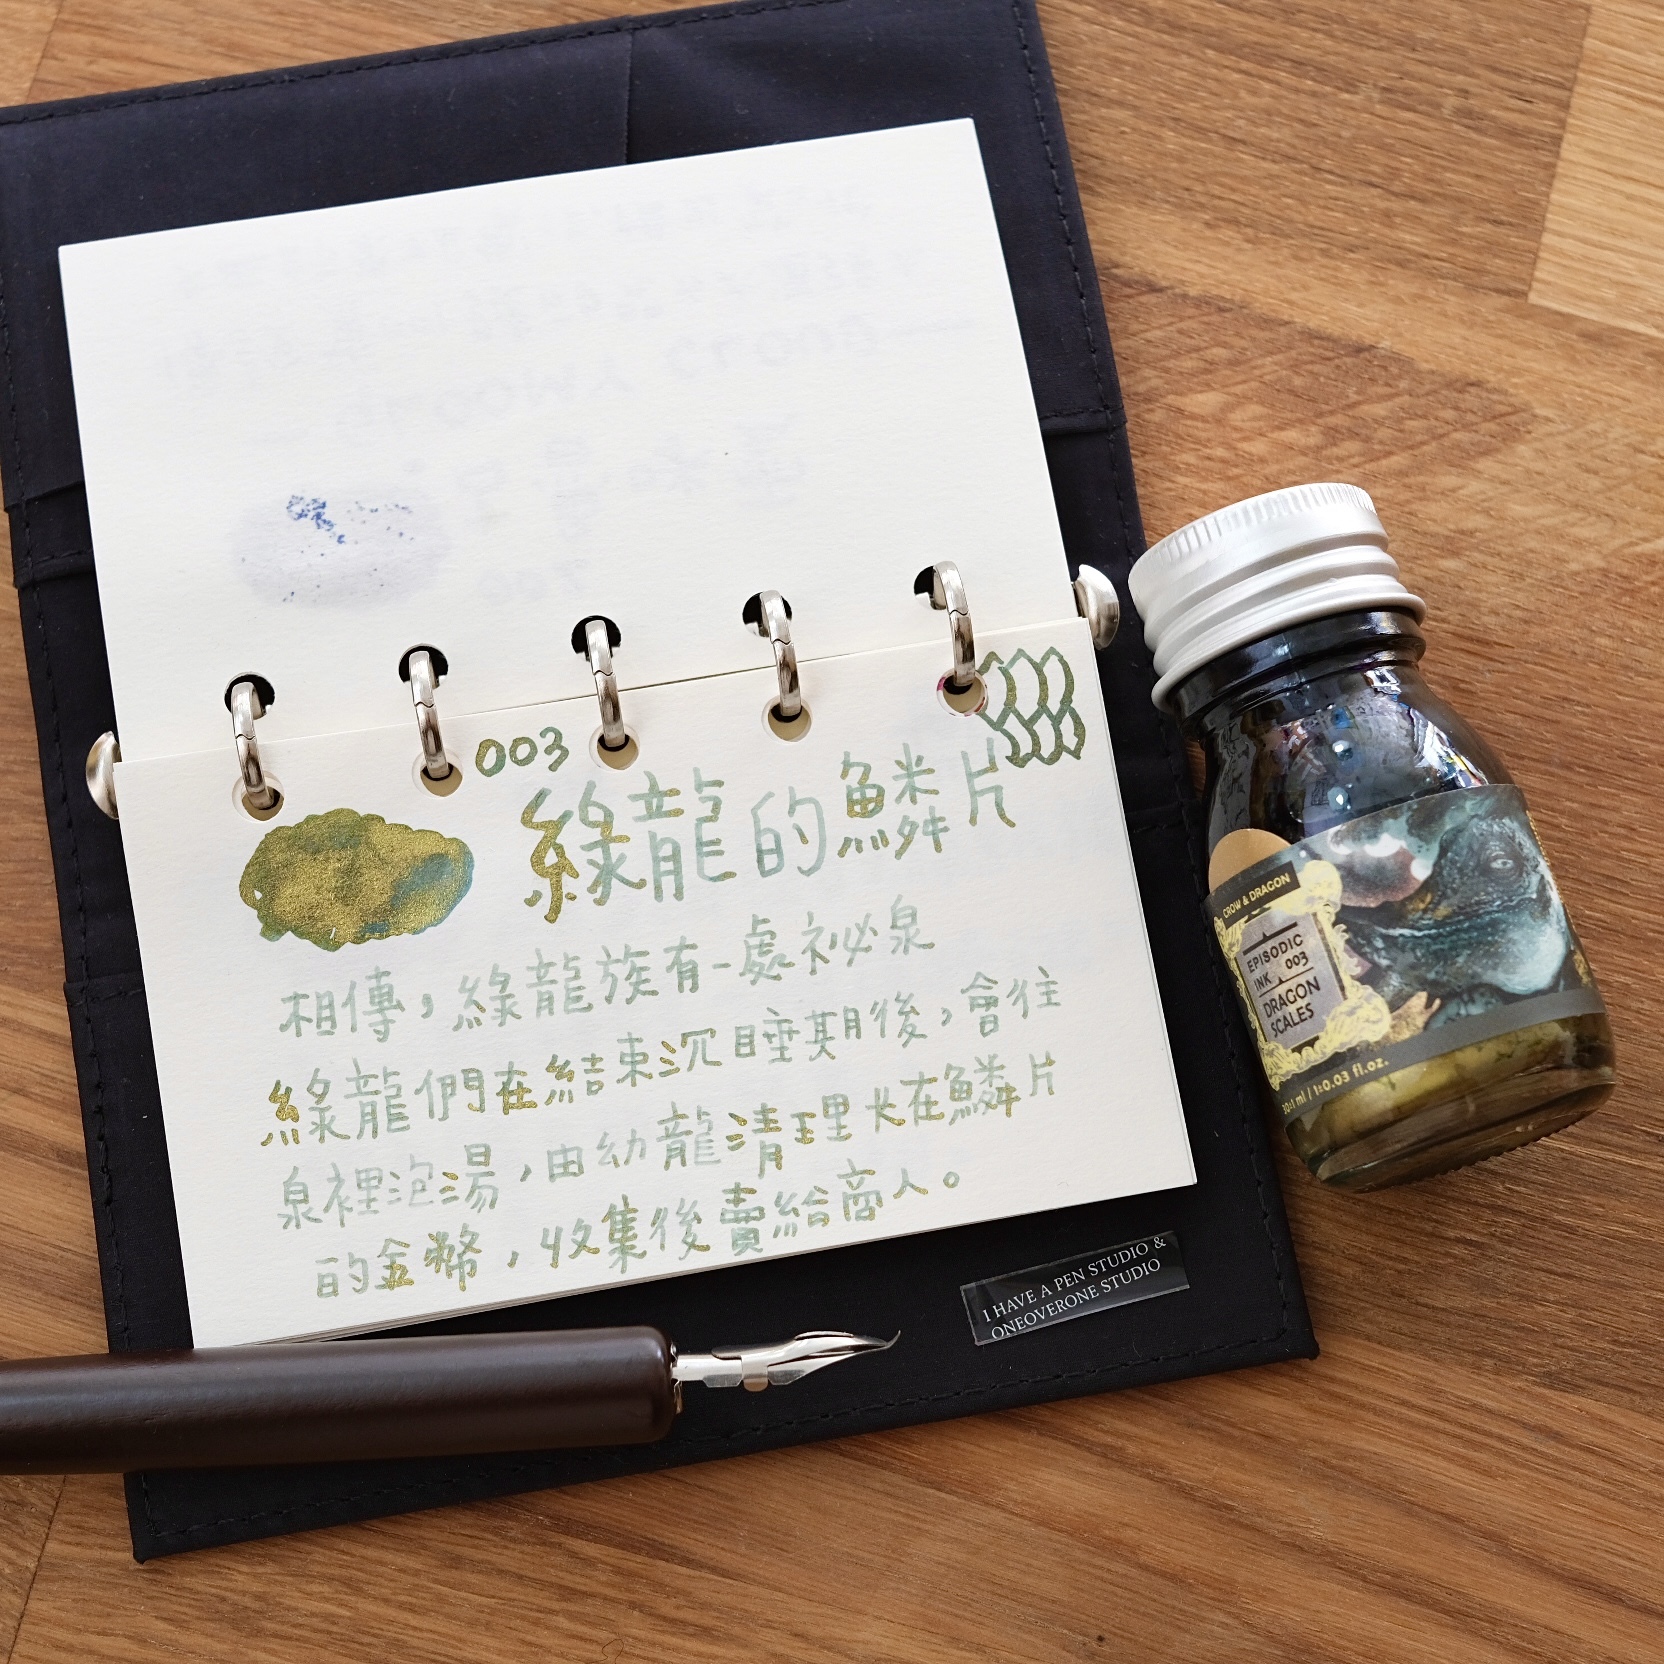 003
綠龍的鱗片
相傳，綠龍族有一處祕泉
綠龍們在結束沉睡期後，會往
泉裡泡湯，由幼龍清理犬在鱗片
的金幣，收集後賣給商人。
CROW & DRAGON
EPISODIC
INK 003
DRAGON
SCALES
30±1 ml / 1±0.03 fl.oz.
I HAVE A PEN STUDIO &
ONEOVERONE STUDIO